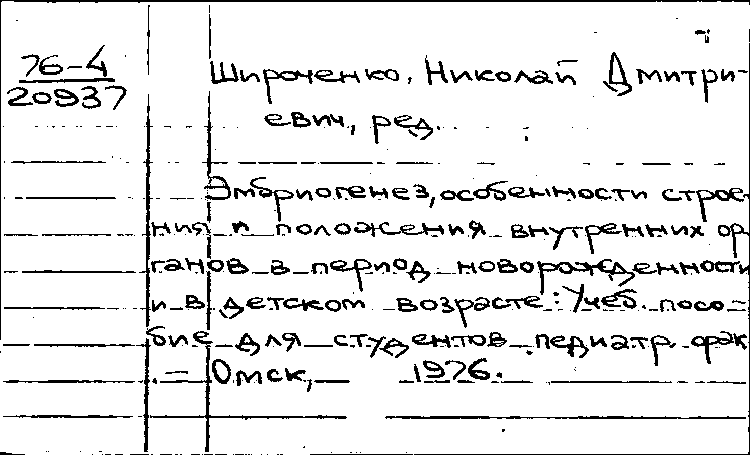 76-4
20937
Широченко, Николай Дмитри-
евич, ред.
Эмбриогенез, особенности строе-
ния и положения внутренних ор
ганов в период новорожденности
и в детском возрасте: Учеб. посо-
бие для студентов педиатр. фак
. – Омск, 1976.